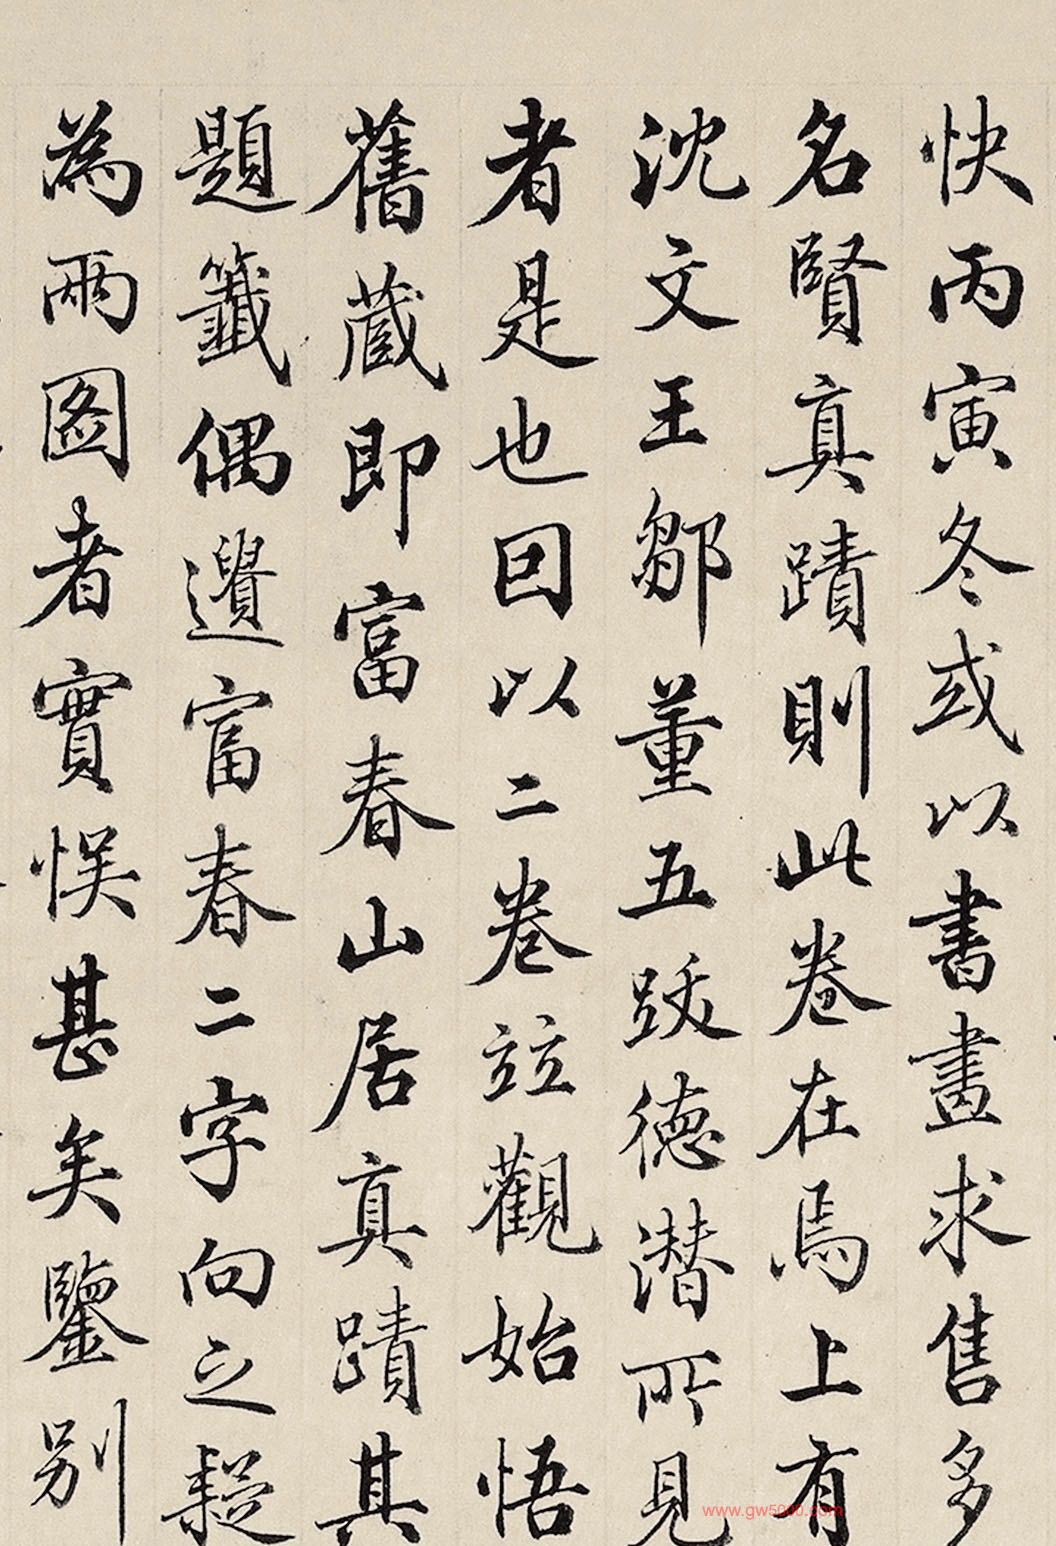 快丙寅冬或以書畫求售多
名賢真蹟則此卷在焉上有
沈文王鄒董五跋德潜所見
者是也因以二卷竝觀始悟
舊蔵即富春山居真蹟其
題籤偶遺富春二字向之疑
為兩图者實悮甚矣鑒别
www.gw5000.com